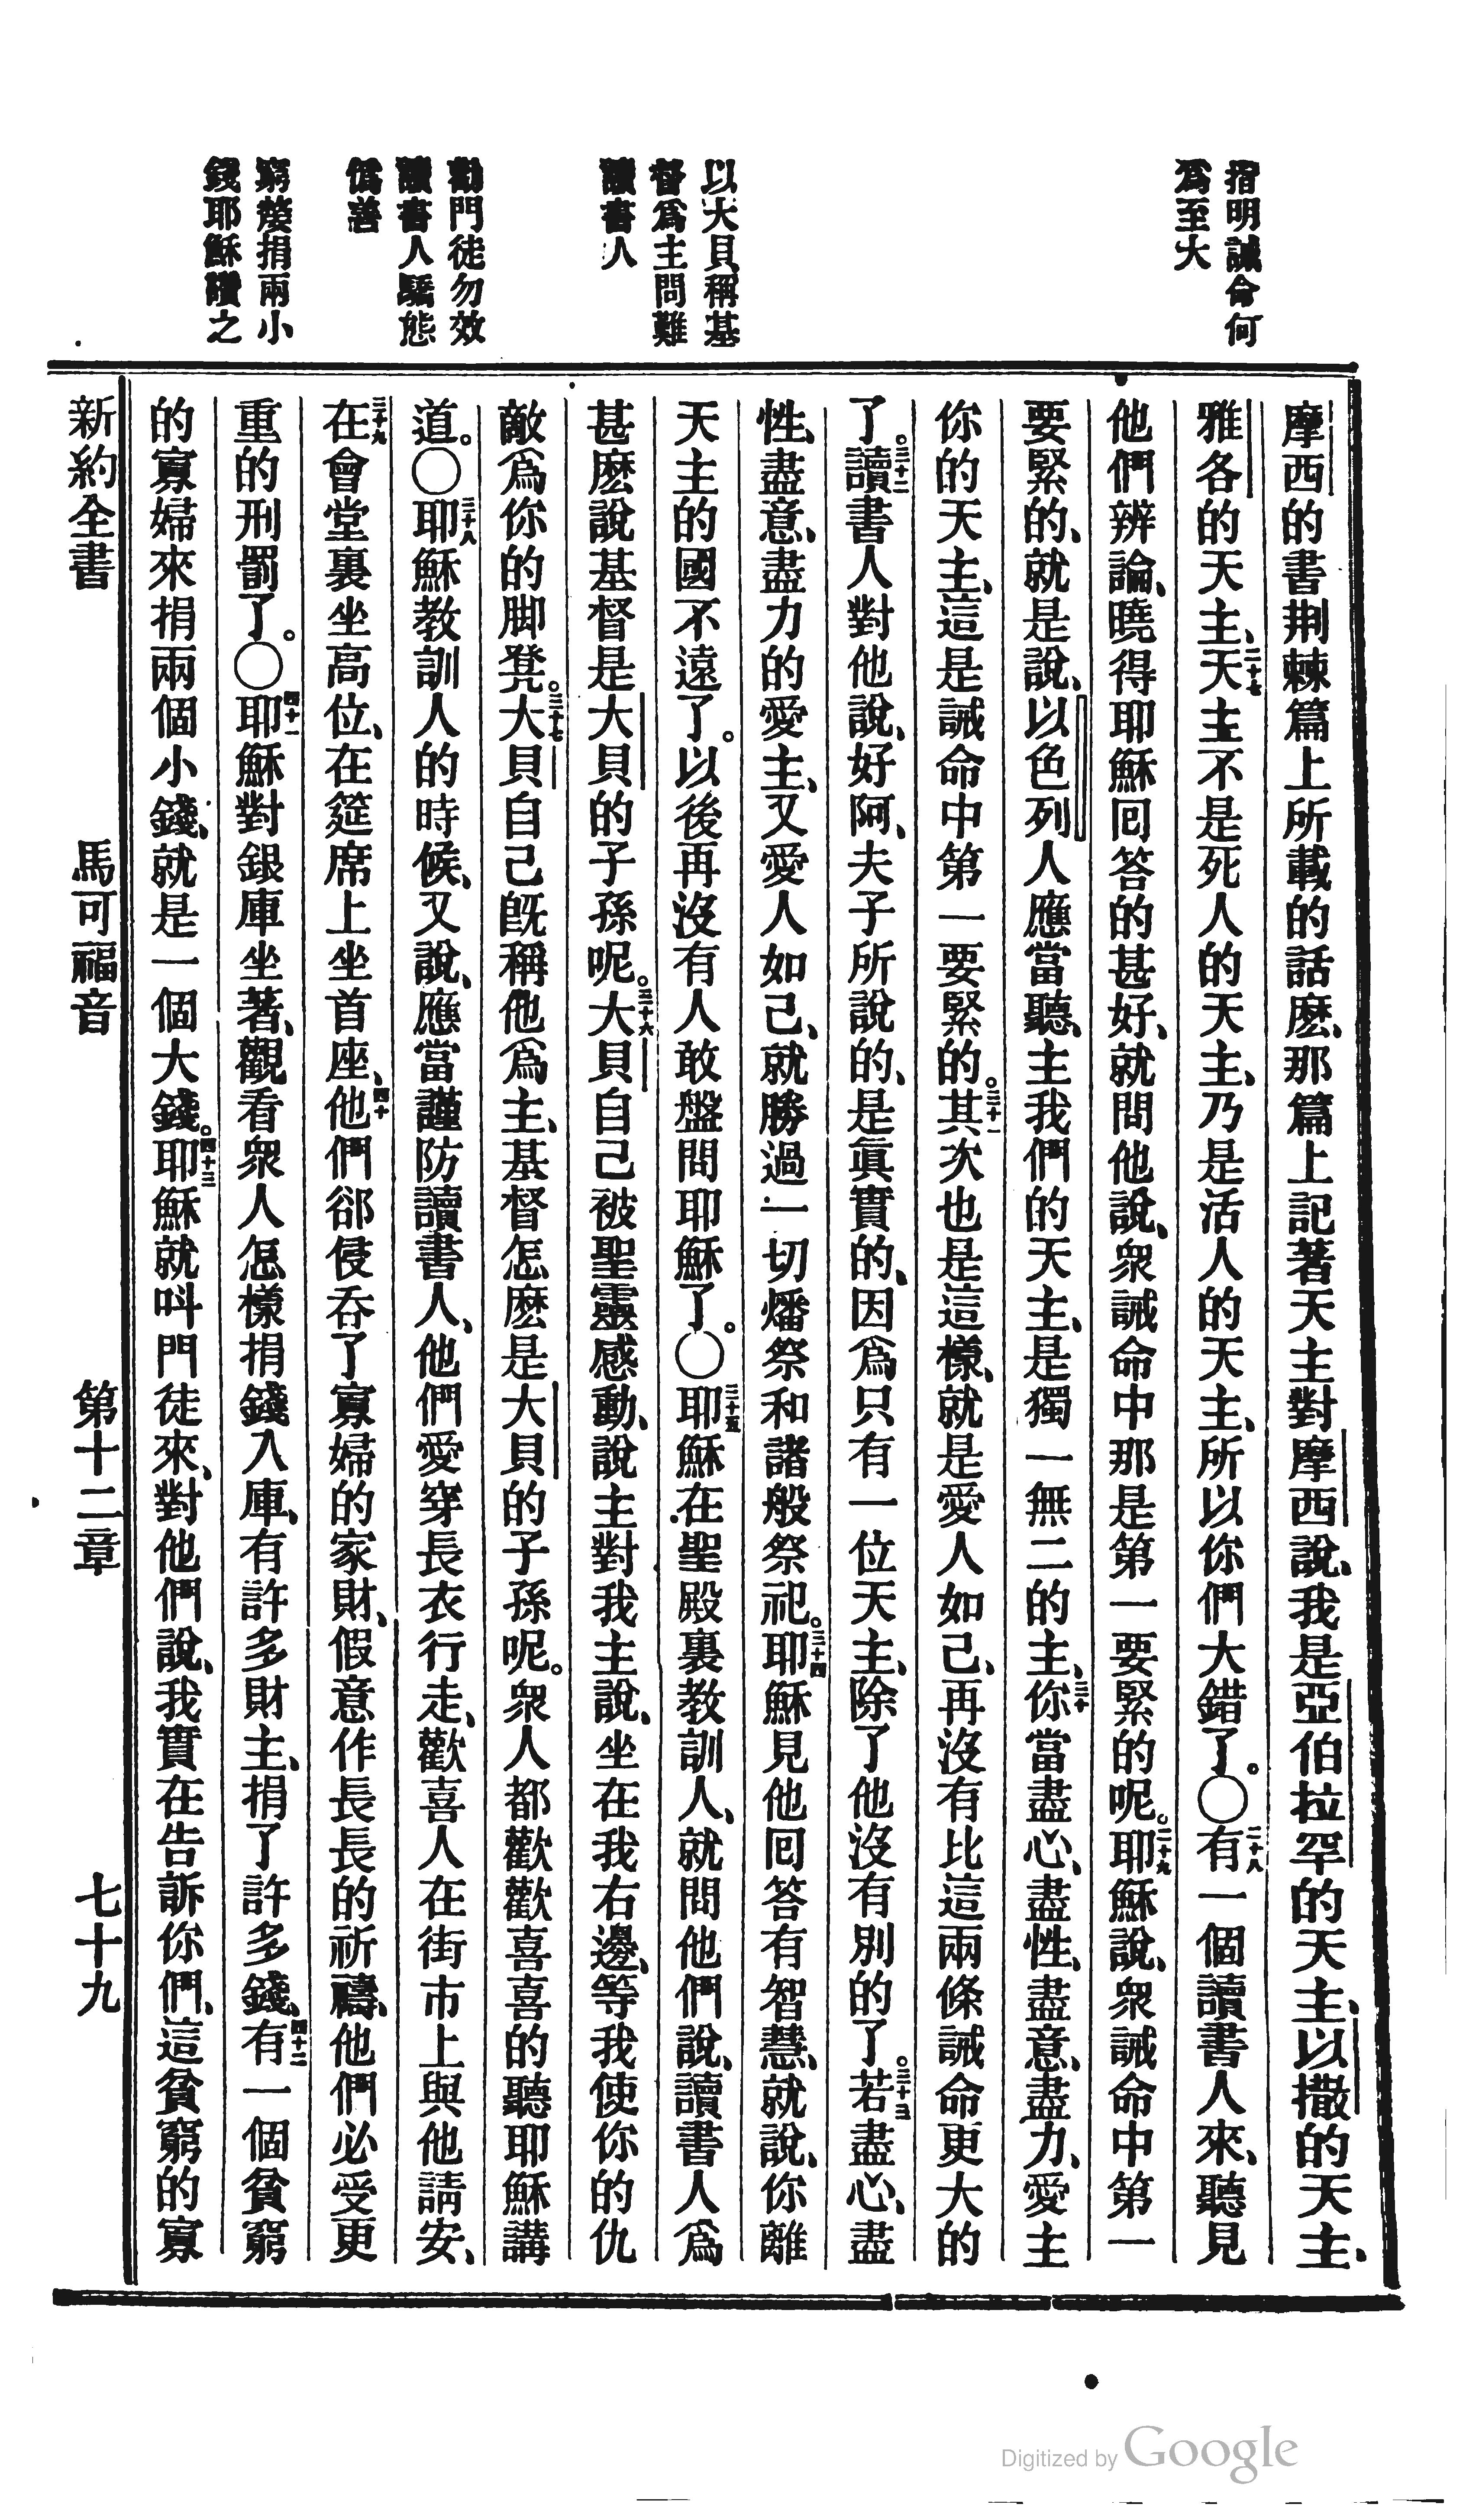 指明誡命何
爲至大
以大貝稱基
督爲主問難
讀書人
勸門徒勿效
讀書人驕態
僞善
窮嫠捐兩小
錢耶穌讚之
摩西的書荆棘篇上所載的話麽、那篇上記著天主對摩西說、我是亞伯拉罕的天主、以撒的天主、
雅各的天主、二十七天主不是死人的天主、乃是活人的天主、所以你們大錯了。○二十八有一個讀書人來、聽見
他們辨論、曉得耶穌回答的甚好、就問他說、衆誡命中那是第一要緊的呢。二十九耶穌說、衆誡命中第一
要緊的、就是說、以色列人應當聽、主我們的天主、是獨一無二的主、三十你當盡心、盡性、盡意、盡力、愛主
你的天主、這是誡命中第一要緊的。三十一其次也是這樣、就是愛人如己、再沒有比這兩條誡命更大的
了。三十二讀書人對他說、好阿、夫子所說的、是眞實的、因爲只有一位天主、除了他沒有別的了。三十三若盡心、盡
性、盡意、盡力的愛主、又愛人如己、就勝過一切燔祭和諸般祭祀。三十四耶穌見他回答有智慧、就說、你離
天主的國不遠了。以後再沒有人敢盤問耶穌了。○三十五耶穌在聖殿裏教訓人、就問他們說、讀書人爲
甚麽說基督是大貝的子孫呢。三十六大貝自己被聖靈感動、說主對我主說、坐在我右邊、等我使你的仇
敵爲你的脚凳。三十七大貝自己旣稱他爲主、基督怎麽是大貝的子孫呢。衆人都歡歡喜喜的聽耶穌講
道。○三十八耶穌教訓人的時候、又說、應當謹防讀書人、他們愛穿長衣行走、歡喜人在街市上與他請安、
三十九在會堂裏坐高位、在筵席上坐首座、四十他們卻侵吞了寡婦的家財、假意作長長的祈禱、他們必受更
重的刑罰了。○四十一耶穌對銀庫坐著、觀看衆人怎樣捐錢入庫、有許多財主、捐了許多錢、四十二有一個貧窮
的寡婦來捐兩個小錢、就是一個大錢。四十三耶穌就呌門徒來、對他們說、我實在告訴你們、這貧窮的寡
新約全書 馬可福音 第十二章 七十九
Digitized by Google